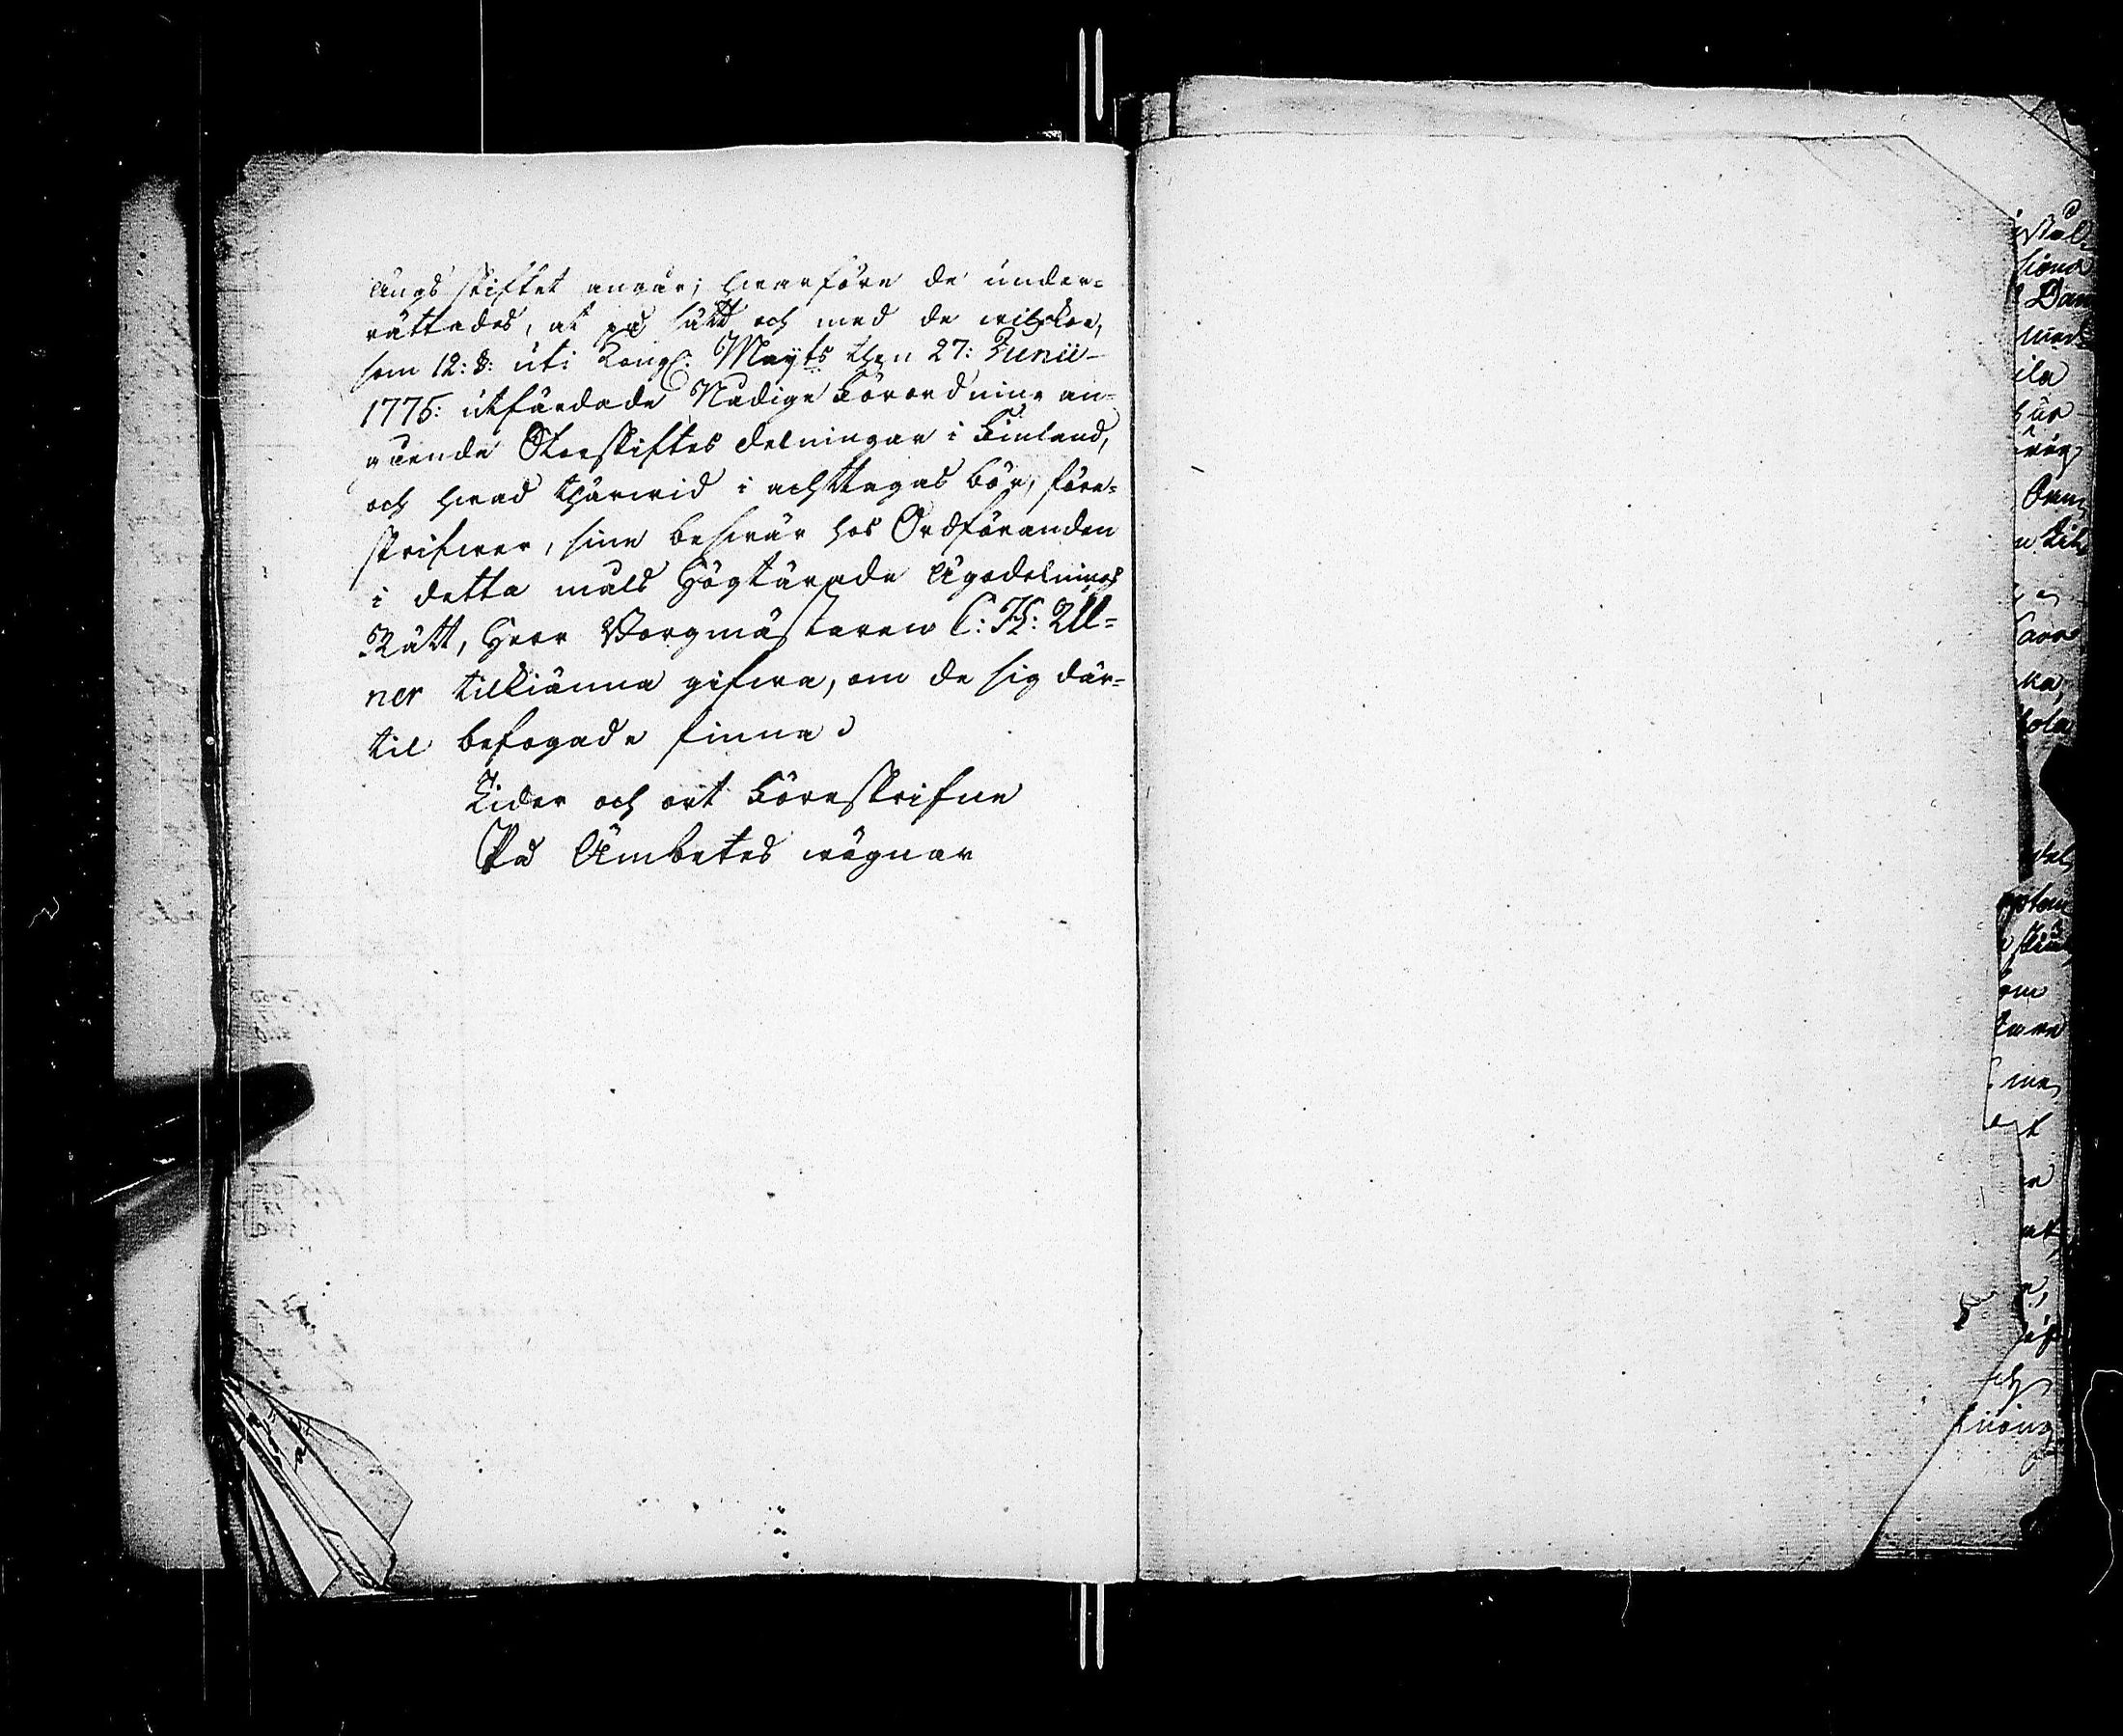 ängs skiftet angår; hwarföre de under-
rättades, at på sätt och med de wilckor,
som 12: §: uti Kongl: Mayts then 27: Junii
1775: utfärdade Nådige Förordning an-
gående Storskiftes delningar i Finland,
och hwad thärwid i acht tagas bör, före-
skrifwer, sine beswär hos Ordföranden
i detta måls Högtärade Ägodelnings
Rätt, Herr Borgmästaren C: H: Ull-
ner tilkiänna gifwa, om de sig där-
til befogade finna
Tider och ort Föreskrifne
På Ämbetes wägnar